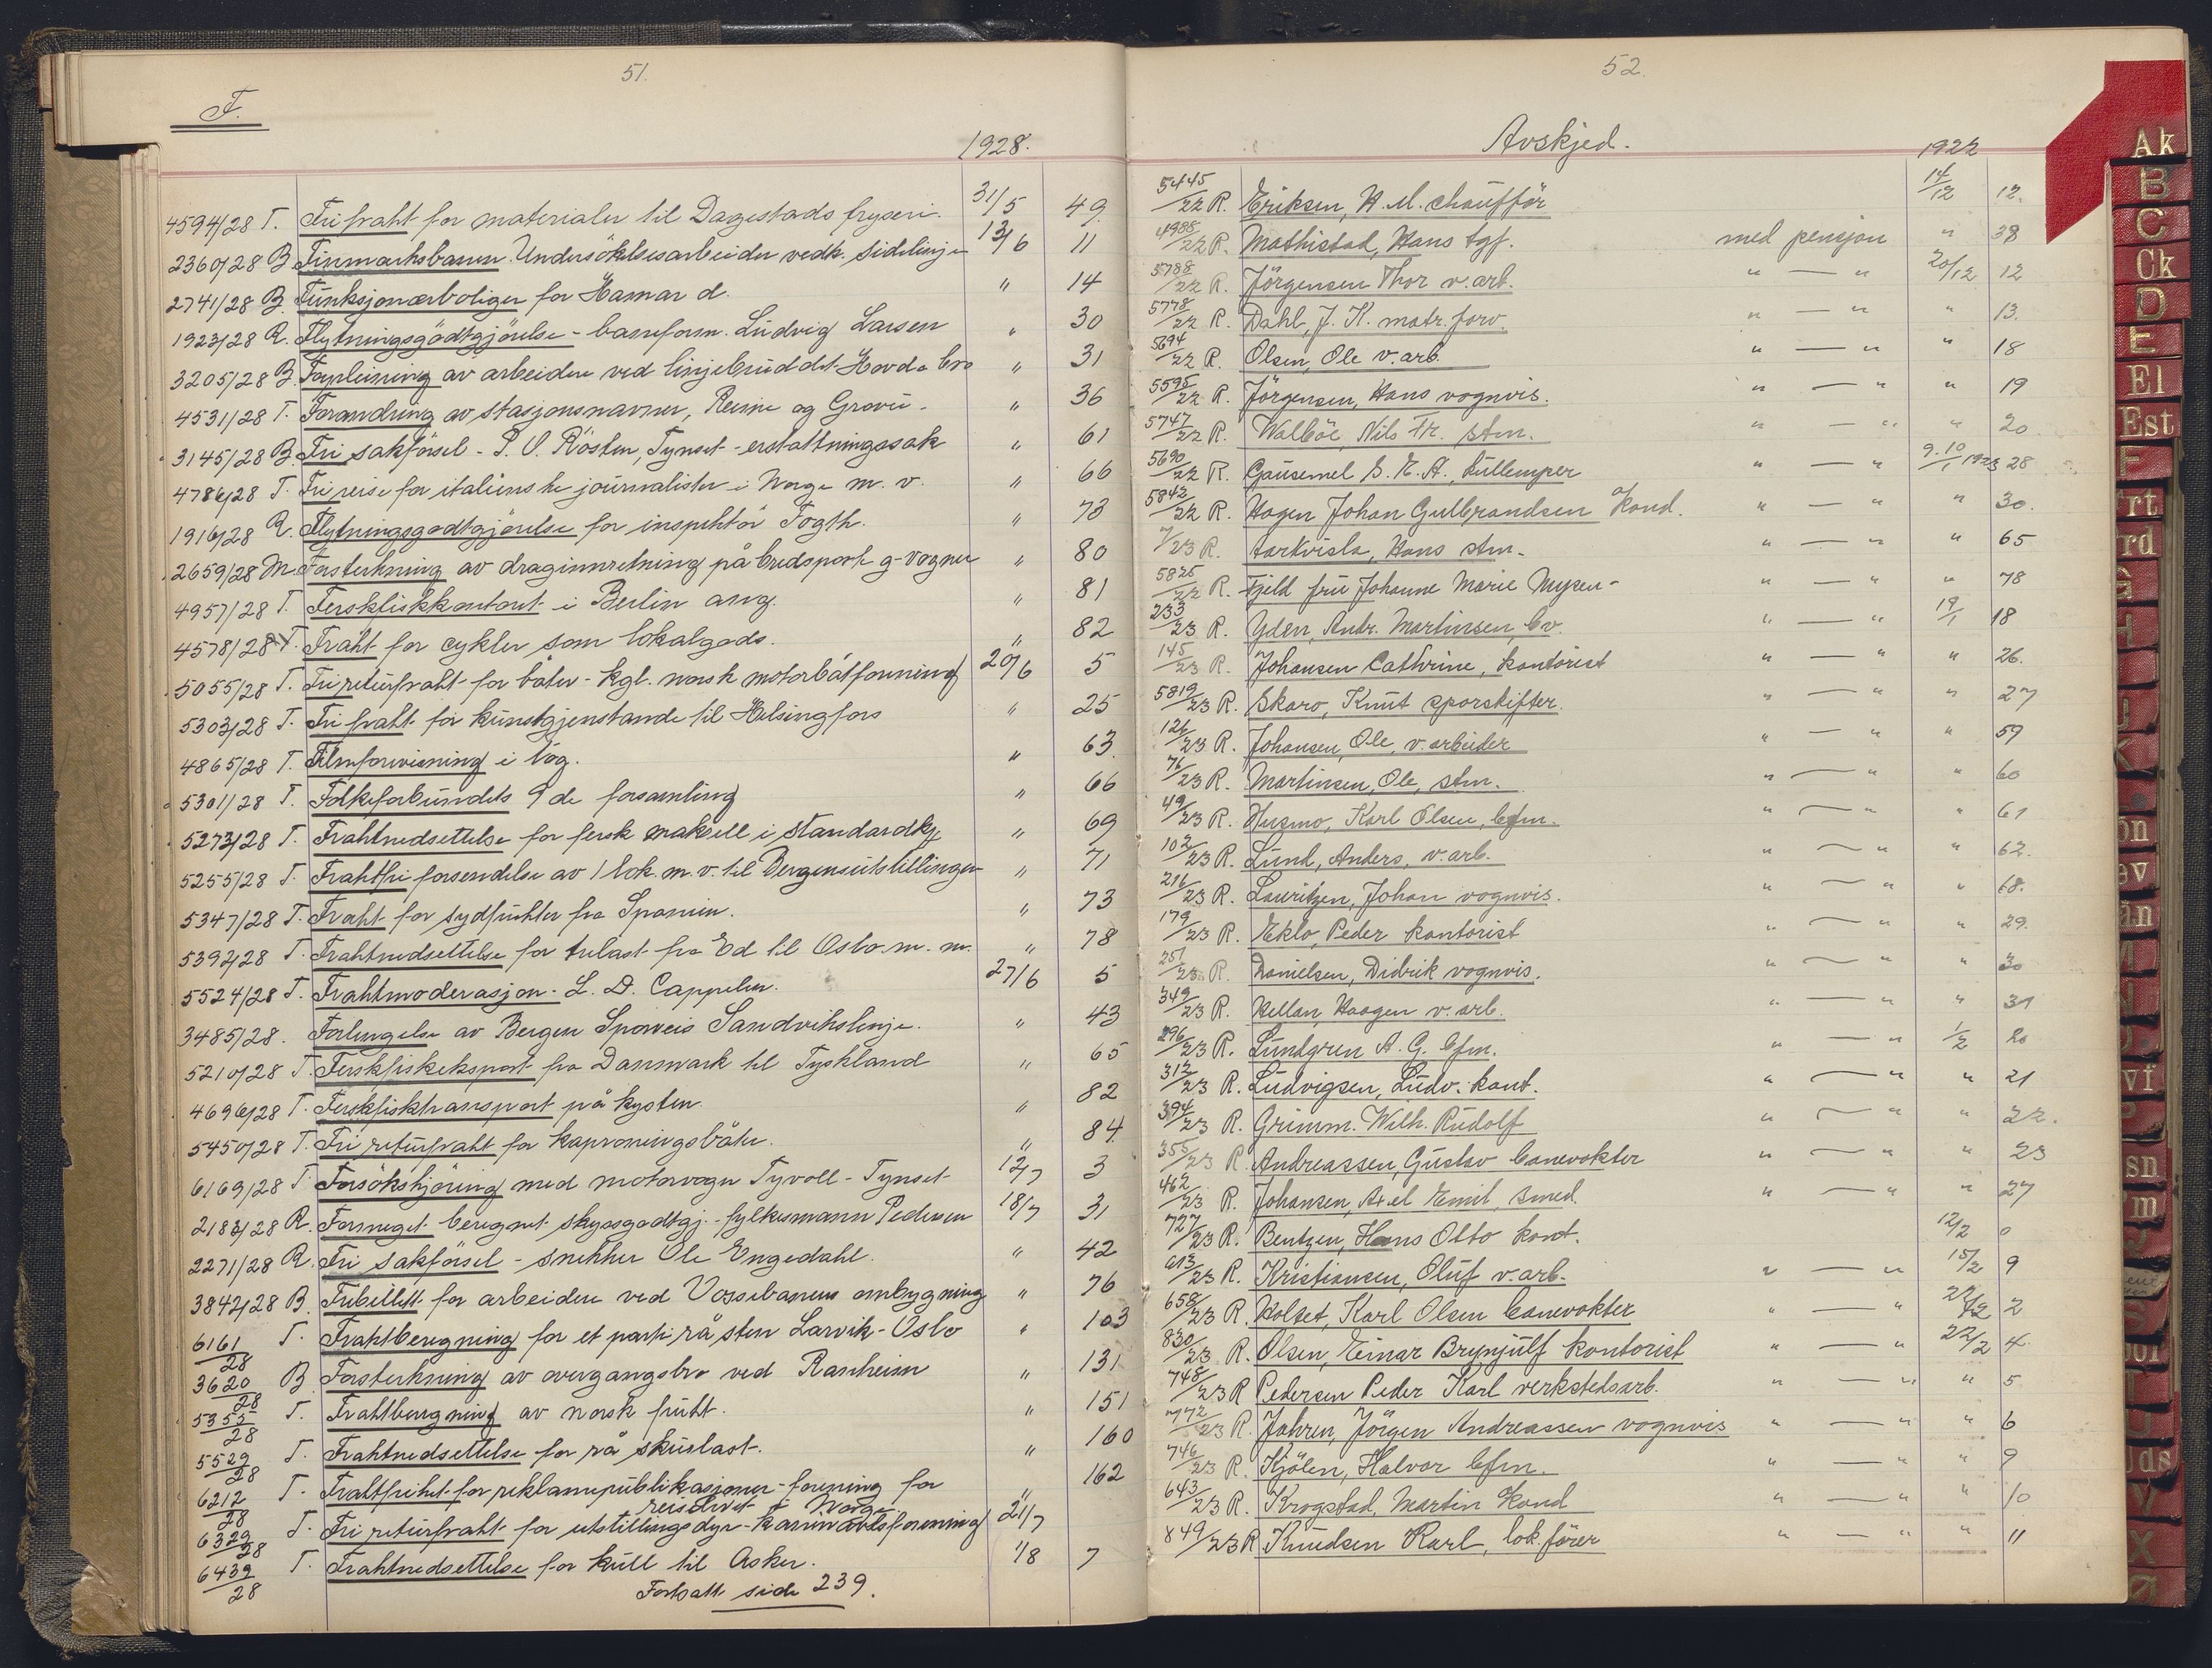 51.
F.
1928.
4594/28 T. Fri fraht for materialer til Dagestads fryseri. 31/5 49
2360/28 B. Finmarksbanen. Undersökelsesarbeider vedk. sidelinje 13/6 11
2741/28 B. Funksjonærboliger for Hamar d. " 14
1923/28 R. Flytningsgodtgjörelse - baneform. Ludvig Larsen " 30
3205/28 B. Forpleining av arbeidere ved linjebruddet Hovda bro " 31
4531/28 T. Forandring av stasjonsnavner, Reime og " 36
3145/28 B. Fri sakförsel - P. O. Rösten, Tynset - erstattningssak " 61
4786/28 T. Fri reise for italienske journalister i Norge m. v. " 66
1916/28 R. Flytningsgodtgjörelse for inspektör Fogth. " 73
2659/28 M. Forsterkning av draginnretning på bredspork g-vogner " 80
4957/28 T. Ferskfiskkontoret i Berlin ang. " 81
4578/28 T. Fraht for cykler som lokalgods. " 82
5055/28 T. Fri returfraht for båter - kgl. norsk motorbåtforening 20/6 5
5303/28 T. Fri fraht for kunstgjenstande til Helsingfors " 25
4865/28 T. Filmforevisning i tog. " 63
5301/28 T. Folkeforbundets 9de forsamling " 66
5273/28 T. Frahtnedsettelse for fersk makrell i standardkj. " 69
5255/28 T. Frahtfri forsendelse av 1 lok. m. v. til Bergensutstillingen " 71
5347/28 T. Fraht for sydfrukter fra Spanien. " 73
5392/28 T. Frahtnedsettelse for trelast fra Ed til Oslo m. m. " 78
5524/28 T. Frahtmoderasjon - L. D. Cappelen. 27/6 5
3485/28. Forlengelse av Bergen Sporveis Sandvikslinje. " 43
5210/28 T. Ferskfiskeksport fra Danmark til Tyskland " 65
4696/28 T. Ferskfisktransport på kysten " 82
5450/28 T. Fri returfraht for kaproningsbåter. " 84
6169/28 T. Forsökskjöring med motorvogn Tyvoll - Tynset 12/7 3
2183/28 R. Formeget beregnet skyssgodtgj. - fylkesmann Pedersen 18/7 31
2271/28 R. Fri sakförsel - snekker Ole Engedahl. " 42
3842/28 B. Fribillett for arbeidere ved Vossebanens ombygning " 76
6161/28 T. Frahtberegning for et parti rå sten Larvik - Oslo " 103
3620/28 B Forsterkning av overgangsbro ved Ranheim " 131
5355/28 T. Frahtberegning av norsk frukt. " 151
5529/28 T. Frahtnedsettelse for rå skurlast. " 160
6212/28 T. Frahtfrihet for reklamepublikasjoner - forening for " 162
reiselivet i Norge
6329/28 T. Fri returfraht for utstillingsdyr - kaninavlsforening 21/7
6439/28 T. Frahtnedsettelse for kull til Asker. 1/8 7
Fortsatt side 239.
52.
Avskjed.
1922
5445/22 R. Eriksen, H. M. chaufför 14/12 12.
4988/22 R. Mathistad, Hans tgf. med pensjon " 38
5788/22 R. Jörgensen Thor v. arb. " — " 20/12 12
5778/22 R. Dahl, J. K. matr. forv. " — " " 13.
5694/22 R. Olsen, Ole v. arb. " — " " 18
5595/22 R. Jörgensen, Hans vognvis. " — " " 19
5747/22 R. Walböe, Nils Fr. stm. " — " " 20
5690/22 R. Gausemel S. E. A., fullemper " — " 9.10/1 1923 28
5842/22 R. Hagen Johan Gulbrandsen kond. " — " " 30.
7/23 R. Aarkvisla, Hans stm. " — " " 65
5825/22 R. Fjeld fru Johanne Marie Mysen - " — " " 78
233/23 R. Yden, Andr. Martinsen, bv. " — " 19/1 18
145/23 R. Johansen Cathrine, kontorist " — " " 26.
5819/23 R. Skaro, Knut sporskifter. " — " " 27
126/23 R. Johansen, Ole, v. arbeider " — " " 59
76/23 R. Martinsen, Ole, stm. " — " " 60
49/23 R. Husmo, Karl Olsen, bfm. " — " " 61
102/23 R. Lund, Anders, v. arb. " — " " 62.
216/23 R. Lauritzen, Johan vognvis. " — " " 68.
179/23 R. Eklo, Peder kontorist " — " " 29.
251/23 R. Danielsen, Didrik vognvis. " — " " 30
349/23 R. Hellan, Haagen v. arb. " — " " 31
296/23 R. Lundgren A. G. bfm. " — " 1/2 20
312/23 R. Ludvigsen, Ludv. kont. " — " " 21
394/23 R. Grimm. Wilh. Rudolf " — " " 22.
355/23 R. Andreassen, Gustav banevokter " — " " 23
462/23 R. Johansen, Axel Emil, smed. " — " " 27
727/23 R. Bentzen, Hans Otto kont. 12/2 0
613/23 R. Kristiansen, Oluf v. arb. " — " 15/2 9
658/23 R. Holset, Karl Olsen banevokter " — " 22/2 2
830/23 R. Olsen, Einar Brynjulf kontorist " — " 22/2 4
748/23 R Pedersen Peder Karl verkstedsarb. " — " " 5
772/23 R. Jahren, Jörgen Andreassen vognvis " — " " 6
746/23 R. Kjölen, Halvor bfm. " — " " 9
643/23 R. Krogstad, Martin kond " — " " 10
849/23 R Knudsen Karl, lok. förer " — " " 11
Ak
B
C
Ck
D
E
El
Est
F